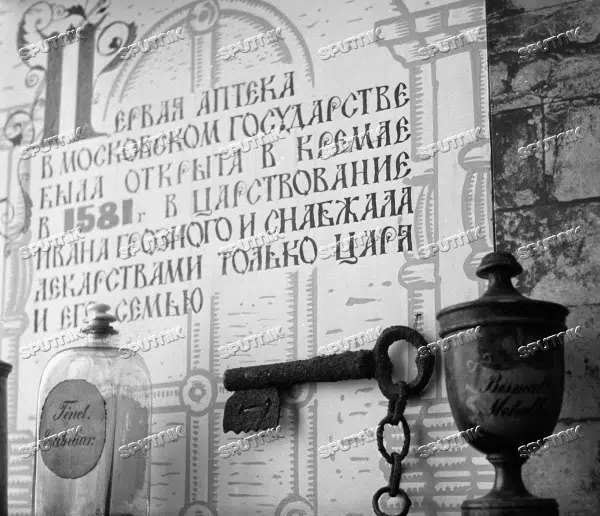 Первая аптека
в Московском государстве
была открыта в Кремле
в 1581 г. в царствование
Ивана Грозного и снабжала
лекарствами только царя
и его семью
Tinct.
Metall
SPUTNIK